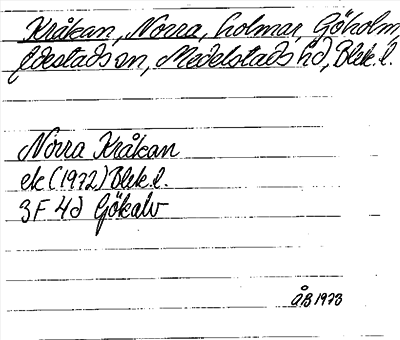 Kråkan, Norra, holmar, Göholm,
Edestads sn, Medelstads hd, Blek. l.
Norra Kråkan
ek (1972) Blek. l.
3F 4d Gökalv
ÅB 1973